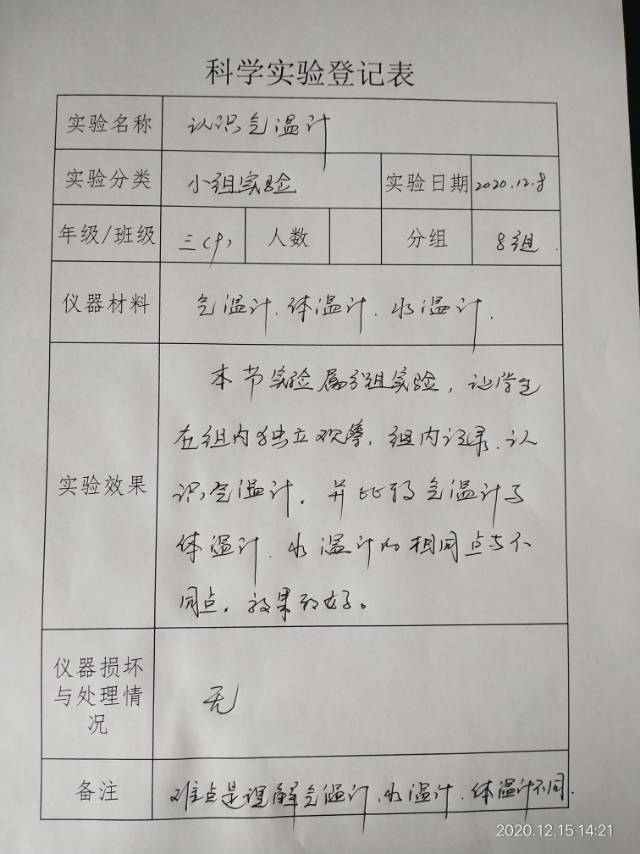 科学实验登记表
实验名称 认识气温计
实验分类 小组实验 实验日期 2020.12.8
年级/班级 三(中) 人数 分组 8组.
仪器材料 气温计.体温计.水温计.
本节实验属分组实验,让学生
在组内独立观察,组内记录.认
实验效果 识气温计.并比较气温计与
体温计.水温计的相同点与不
同点.效果较好。
仪器损坏
与处理情 无
况
备注 难点是理解气温计.水温计.体温计不同.
2020.12.15 14:21